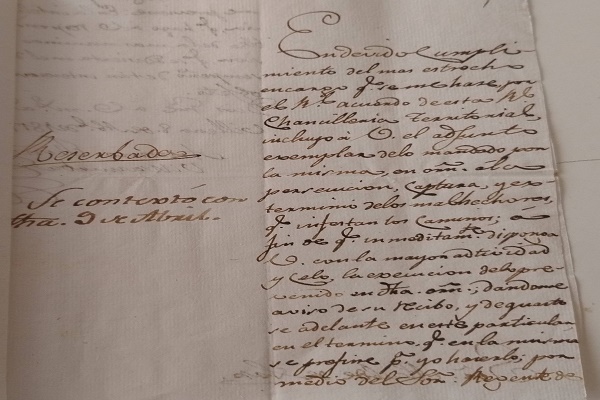 Reserbada
Se contextó con
fha. 9 de Abril.
En devido cumpli-
miento del mas estrecho
encargo q.e se me hace por
el R.l acuerdo de esta R.l
Chancilleria Territorial
incluyo à V. el adjunto
exemplar delo mandado por
la misma, en orn. ala
persecucion, captura, y ex-
terminio delos malhechores,
q.e infestan los Caminos; a
fin de q.e inmediatam.te disponga
V. con la mayor actividad
y celo, la execucion delo pre-
venido en dha. orn.; dandome
aviso de su recibo, y de quanto
se adelante en este particular
en el termino q.e en la misma
se prefine p.a yo hacerlo, por
medio del Sor. Regente de